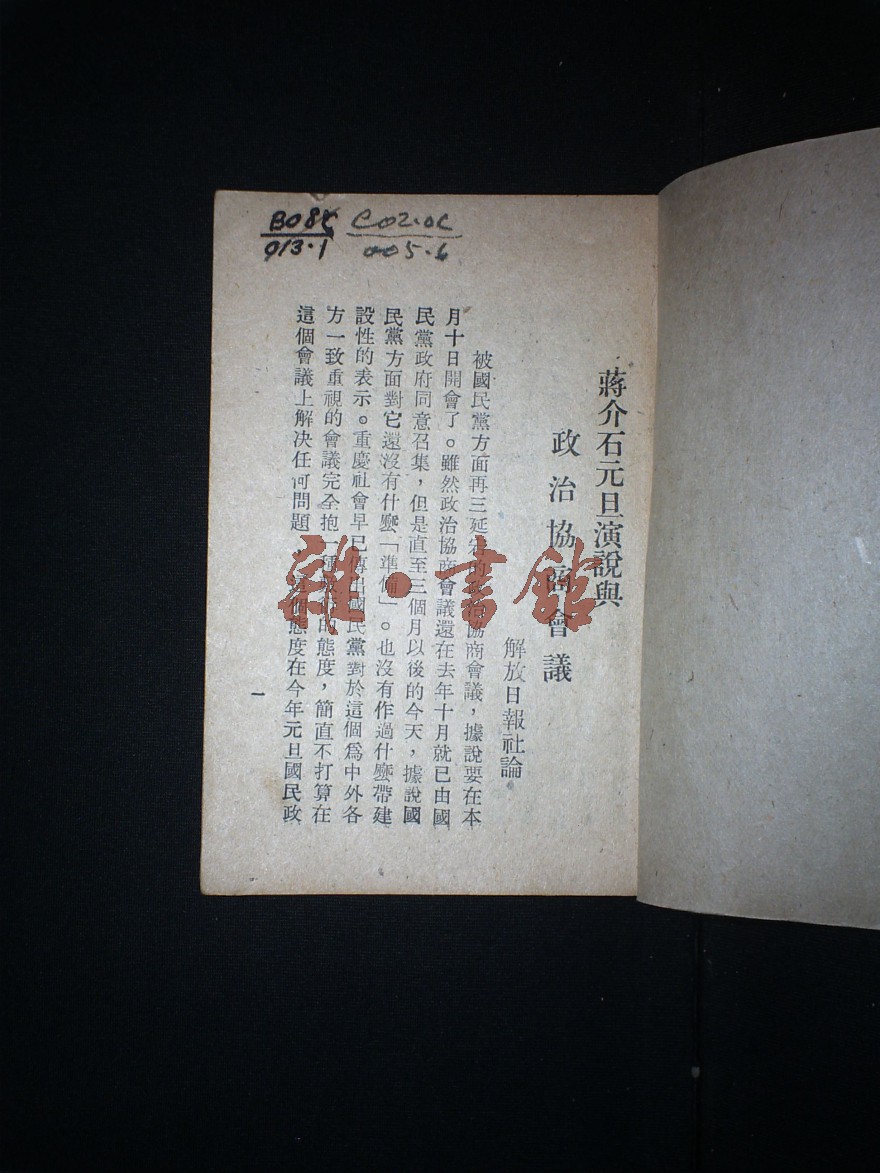 B08
013.1
C02.0C
005.6
蔣介石元旦演說與
政治協商會議
解放日報社論
被國民黨方面再三延宕的政治協商會議，據說要在本
月十日開會了。雖然政治協商會議還在去年十月就已由國
民黨政府同意召集，但是直至三個月以後的今天，據說國
民黨方面對它還沒有什麼「準備」。也沒有作過什麼帶建
設性的表示。重慶社會早已傳出國民黨對於這個爲中外各
方一致重視的會議完全抱一種的態度，簡直不打算在
這個會議上解决任何問題，這個態度在今年元旦國民政
一
雜·書館